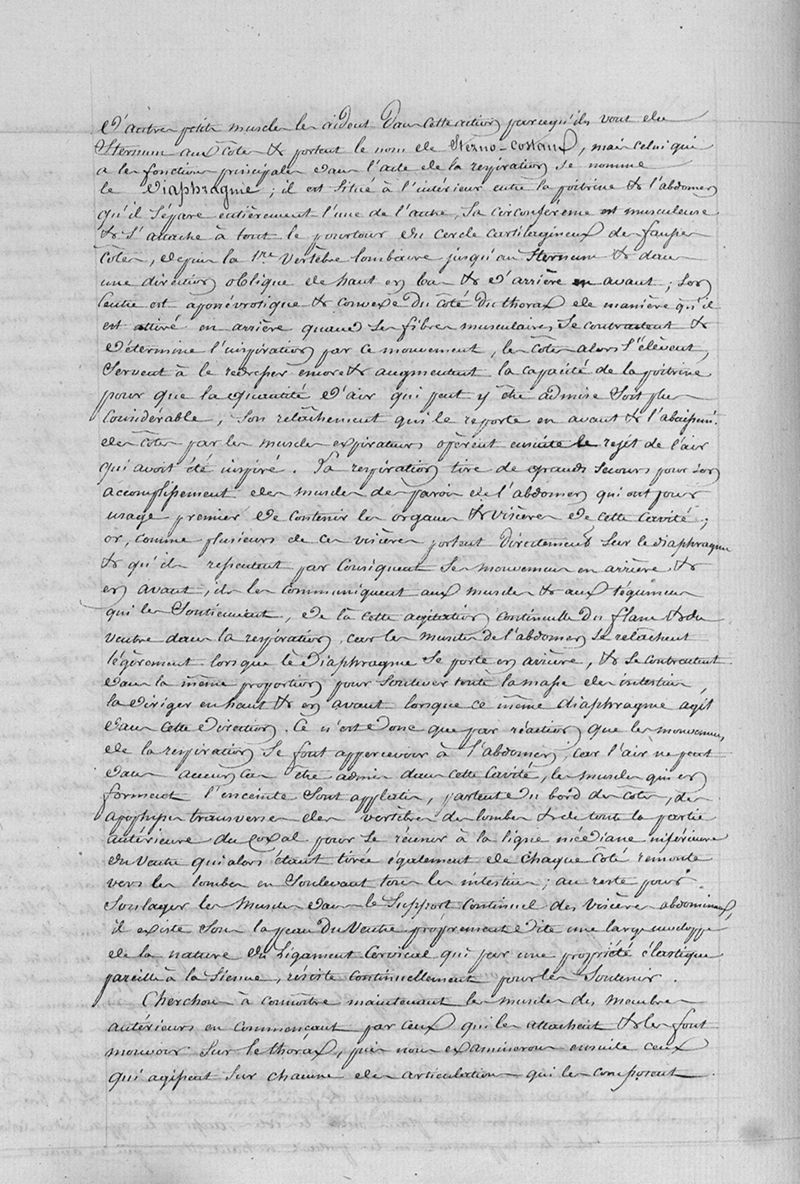 D'autres petits muscles les aident dans cette action parcequ'ils vont du
Sternum aux côtes & portent le nom de Sterno-costaux, mais celui qui
a les fonctions principales dans l'acte de la respiration se nomme
le Diaphragme; il est situé à l'intérieur entre la poitrine & l'abdomen
qu'il sépare entièrement l'une de l'autre, Sa circonference est musculeuse
& s'attache à tout le pourtour du cercle cartilagineux des fausses
côtes, depuis la 1re vertèbre lombaire jusqu'au Sternum & dans
une direction oblique de haut en bas & d'arrière en avant; Son
Centre est aponévrotique & convexe du côté du thorax de manière qu'il
est attiré en arrière quand ses fibres musculaires se contractent &
détermine l'inspiration par ce mouvement, les côtes alors s'élèvent,
servent à le redresser encore & augmentent la capacité de la poitrine
pour que la quantité d'air qui peut y être admise soit plus
considérable, Son relâchement qui le reporte en avant & l'abaissmt
des côtes par les muscles expirateurs opèrent ensuite le rejet de l'air
qui avoit été inspiré. La respiration tire de grands secours pour son
accomplissement des muscles des parois de l'abdomen qui ont pour
usage premier de contenir les organes & viscères de cette cavité;
or, comme plusieurs de ces viscères portent directement sur le diaphragme
& qu'ils ressentent par conséquent ses mouvemens en arrière &
en avant, ils les communiquent aux muscles & aux tégumens
qui les soutiennent, de là cette agitation continuelle du flanc & du
ventre dans la respiration, car les muscles de l'abdomen se relâchent
légèrement lorsque le diaphragme se porte en arrière, & se contractent
dans la même proportion pour soulever toute la masse des intestins,
la diriger en haut & en avant lorsque ce même diaphragme agit
dans cette direction. Ce n'est donc que par réaction que les mouvemens
de la respiration se font appercevoir à l'abdomen, car l'air ne peut
dans aucun cas être admis dans cette cavité, les muscles qui en
forment l'enceinte sont applatis, partent du bord des côtes, des
apophises transverses des vertèbres des lombes & de toute la partie
antérieure du coxal pour se réunir à la ligne médiane inférieure
du ventre qui alors étant tirée également de chaque côté remonte
vers les lombes en soulevant tous les intestins; au reste pour
soulager les muscles dans le support continuel des viscères abdominaux,
il existe sous la peau du ventre proprement dite une large enveloppe
de la nature du ligament cervical qui par une propriété élastique
pareille à la sienne, résiste continuellement pour les soutenir.
Cherchons à connoître maintenant les muscles des membres
antérieurs en commençant par ceux qui les attachent & les font
mouvoir sur le thorax, puis nous examinerons ensuite ceux
qui agissent sur chacune des articulations qui les composent.